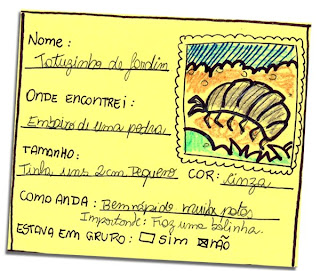 Nome:
Tatuzinho de jardim
ONDE ENCONTREI:
Embaixo de uma pedra
TAMANHO:
Tinha uns 2cm Pequeno COR: Cinza
COMO ANDA: Bem rápido muitas patas
Importante: Faz uma bolinha.
ESTAVA EM GRUPO: SIM NÃO